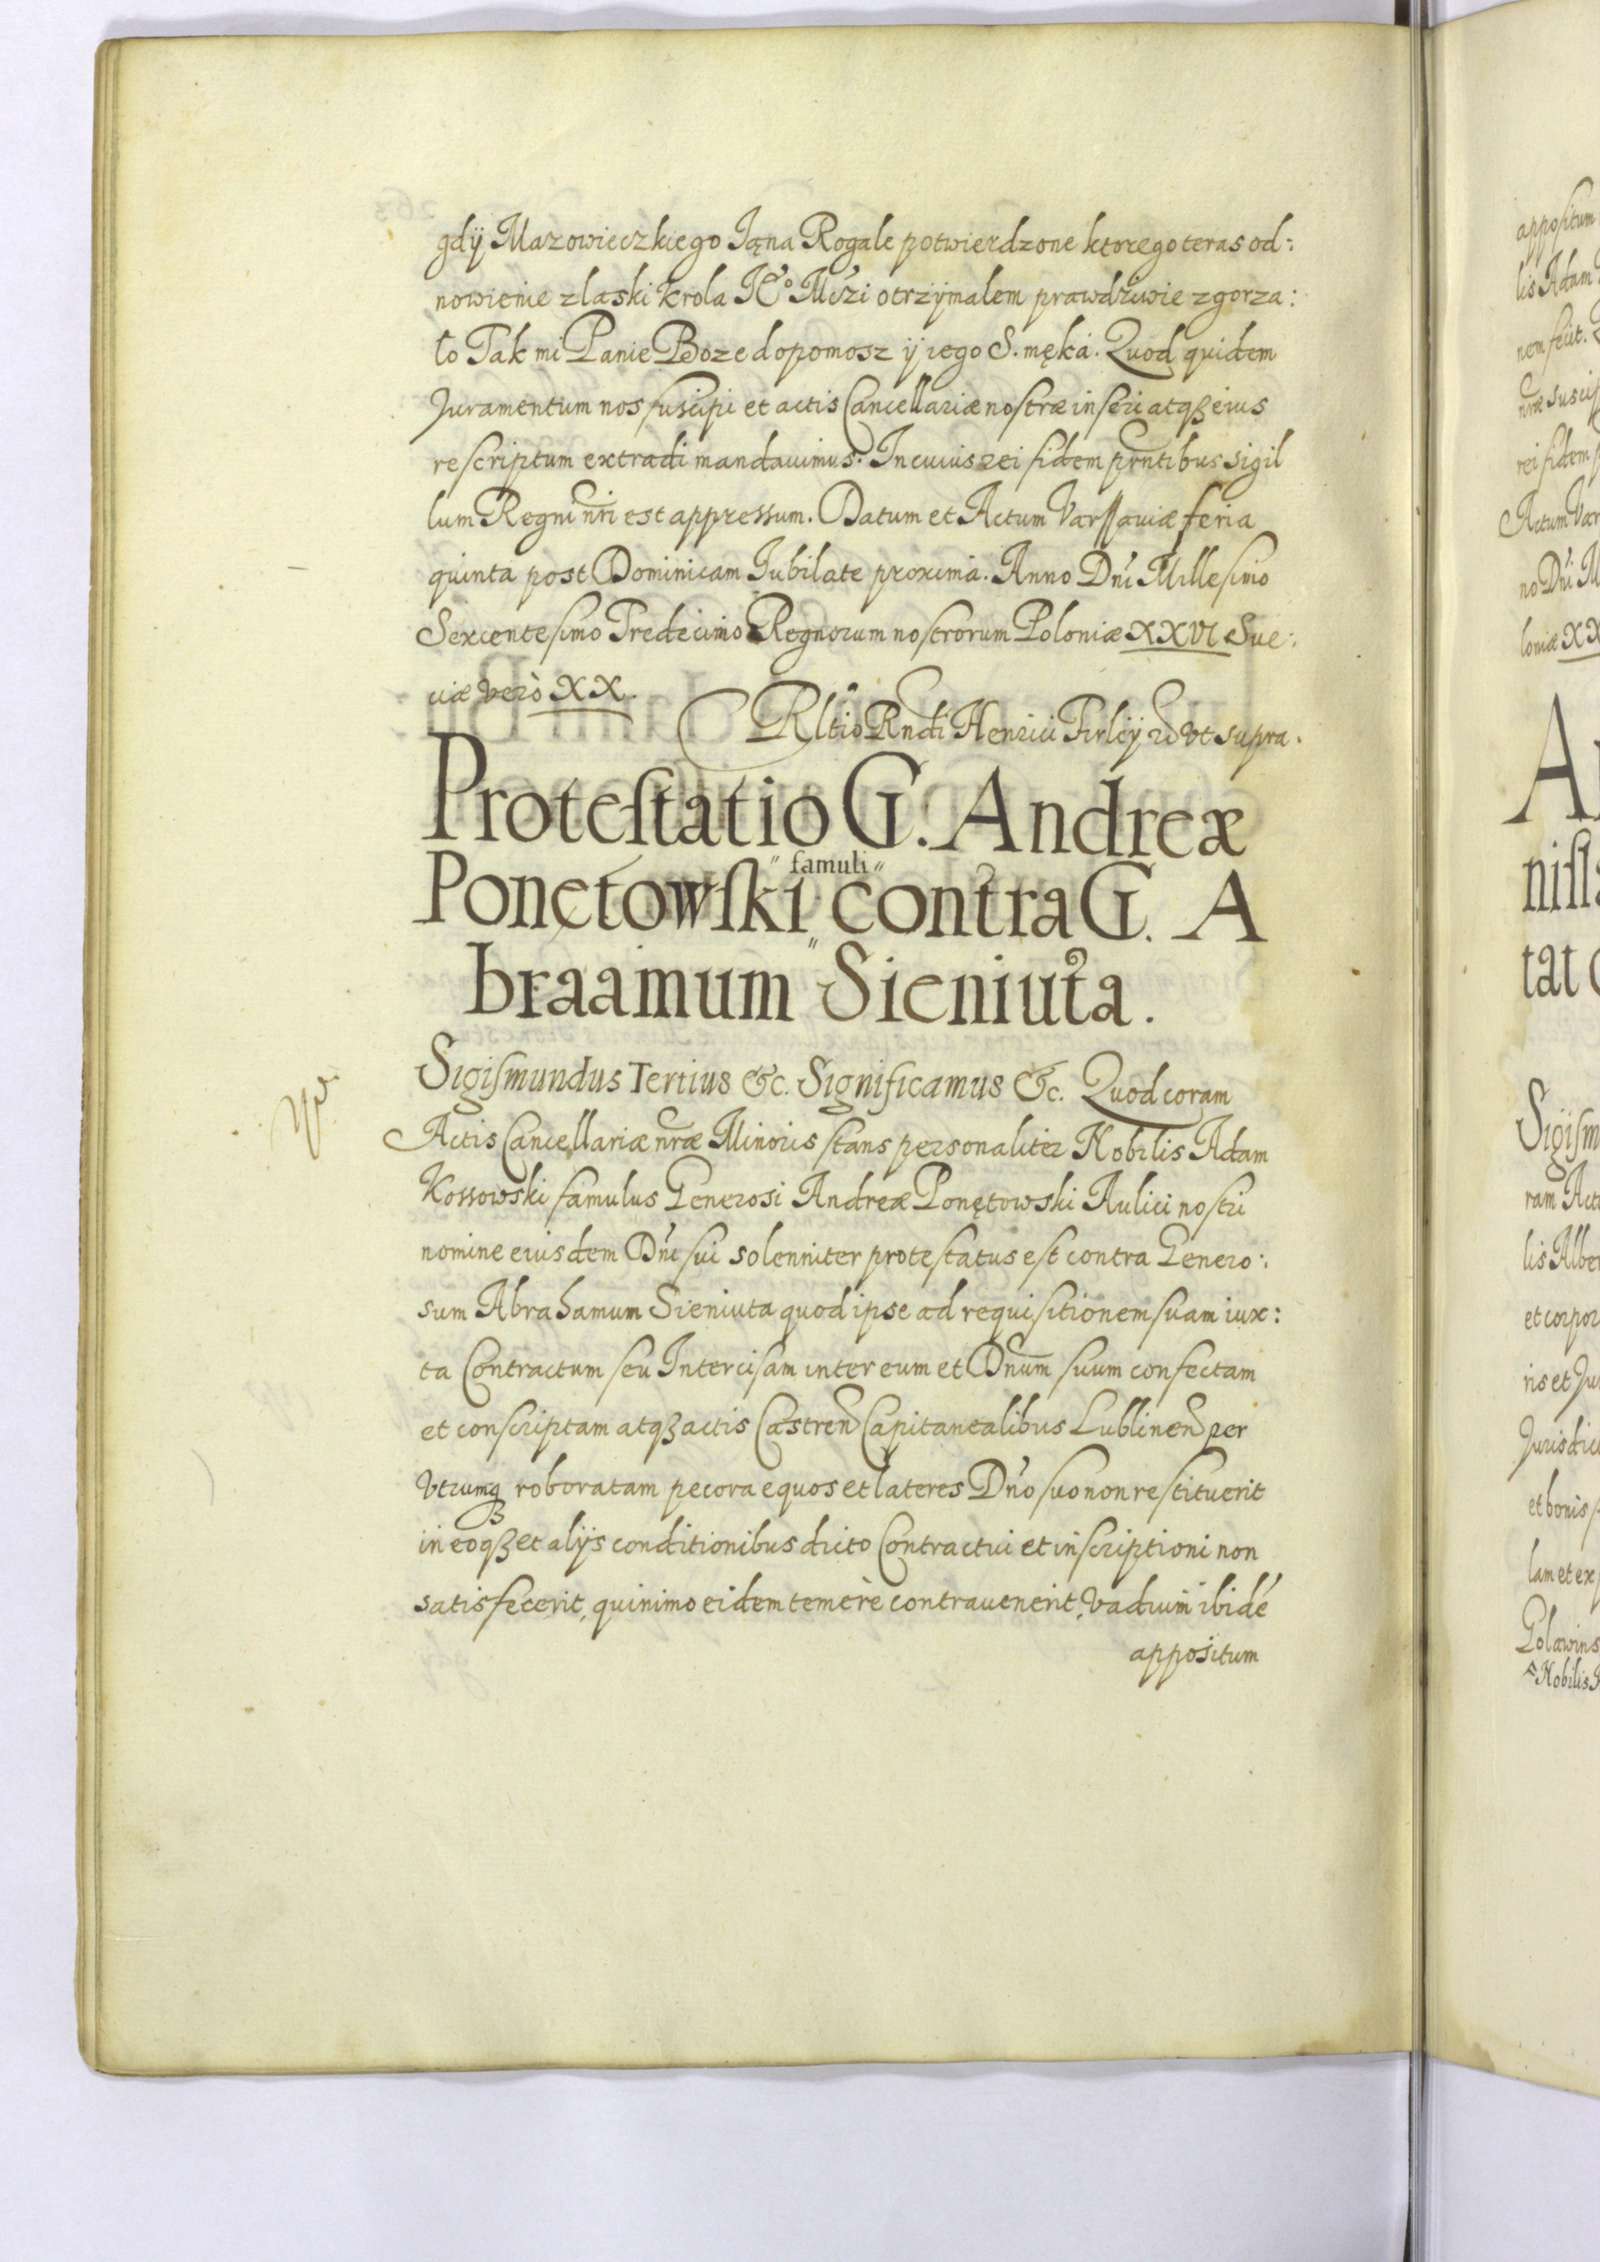 gdÿ Mazowieczkiego Iąna Rogale potwierdzone ktorego teras od:
nowienie z laski krola Ie° Mczi otrzÿmalem prawdziwie zgorza:
ło Tak mi Panie Boze dopomosz ÿ iego S. męka. Quod quidem
Juramentum nos suscipi et actis Cancellariæ nostræ inseri atqꝫ eius
rescriptum extradi mandauimus. In cuius rei fidem pr̃ntibus sigil
lum Regni nr̃i est appressum. Datum et Actum Varssauiæ feria
quinta post Dominicam Iubilate proxima. Anno Dn̄i Millesimo
Sexcentesimo Tredecimo Regnorum nostrorum Poloniæ XXVI Sue:
ciæ verò XX.
Rltio Rndi Henrici Firleÿ ut supra.
Protestatio G. Andreæ
Ponętowski famuli contra G. A
braamum Sieniuta.
Sigismundus Tertius &c. Significamus &c. Quod coram
Actis Cancellariæ nr̃æ Minoris stans personaliter Nobilis Adam
Kossowski famulus Generosi Andreæ Ponętowski Aulici nostri
nomine eiusdem Dn̄i sui solenniter protestatus est contra Genero:
sum Abrahamum Sieniuta quod ipse ad requisitionem suam iux:
ta Contractum seu Intercisam inter eum et Dn̄um suum confectam
et conscriptam atqꝫ actis Castren̄ Capitanealibus Lublinen̄ per
Vtrumqꝫ roboratam pecora equos et lateres Dn̄o suo non restituerit
in eoqꝫ et alÿs conditionibus dicto Contractui et inscriptioni non
satisfecerit, quinimo eidem temerè contrauenerit, Vadium ibidē
appositum
appositum
lis Adam
nem fecit.
rei fidem
Actum Var
no Dn̄i M
loniæ XX
A
nisl
tat
Sigism
ram Act
lis Albe
et corpor
ris et Ju
Jurisdic
et bonis
lam et ex
Nobilis